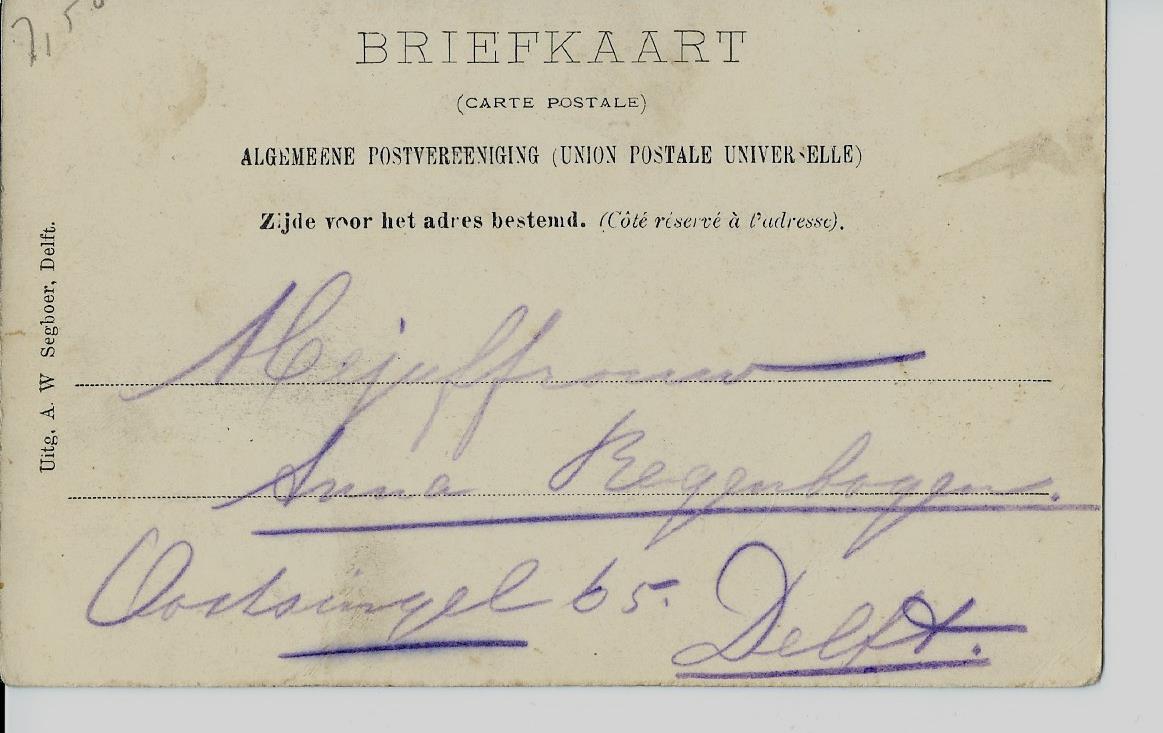 7,50
BRIEFKAART
(CARTE POSTALE)
ALGEMEENE POSTVEREENIGING (UNION POSTALE UNIVERSELLE)
Zijde voor het adres bestemd. (Côté réservé à l'adresse).
Uitg. A. W Segboer, Delft.
Mejuffrouw
Anna Regenbogen.
Oostsingel 65. Delft.